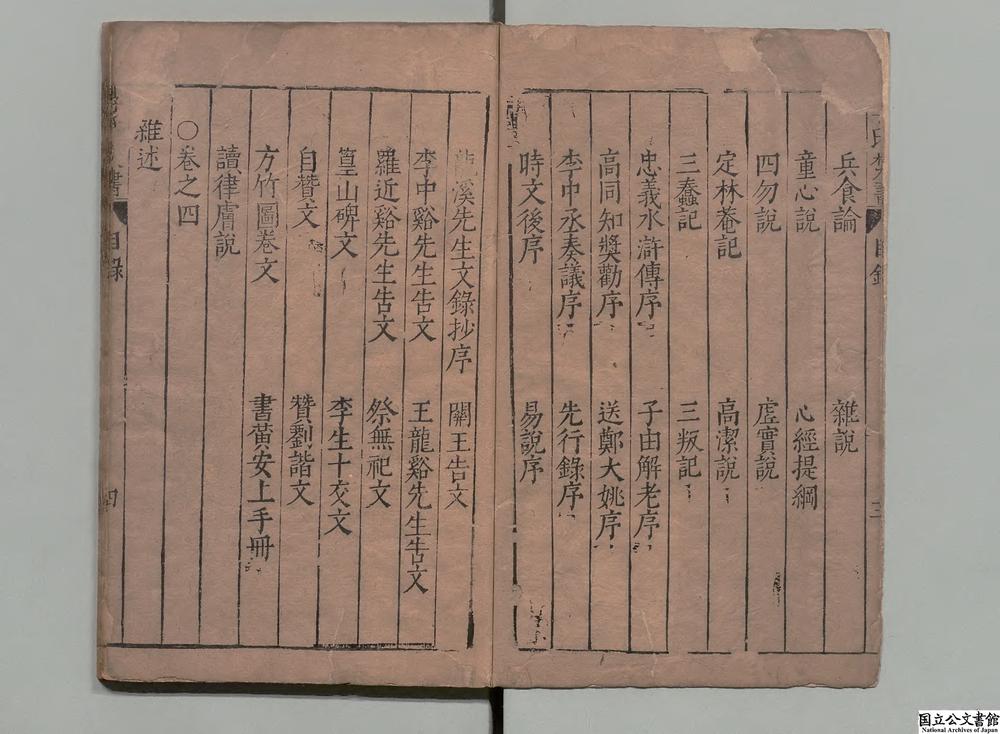 兵食論 雜說
童心說 心經提綱
四勿說 虛實說
定林菴記 高潔說
三蠢記 三叛記
忠義水滸傳序 子由解老序
高同知獎勸序 送鄭大姚序
李中丞奏議序 先行錄序
時文後序 易說序
三
龍溪先生文錄抄序 關王告文
李中谿先生告文 王龍谿先生告文
羅近谿先生告文 祭無祀文
篁山碑文 李生十交文
自贊文 贊劉諧文
方竹圖卷文 書黃安上手冊
讀律膚說
○卷之四
雜述
目錄 四
国立公文書館
National Archives of Japan